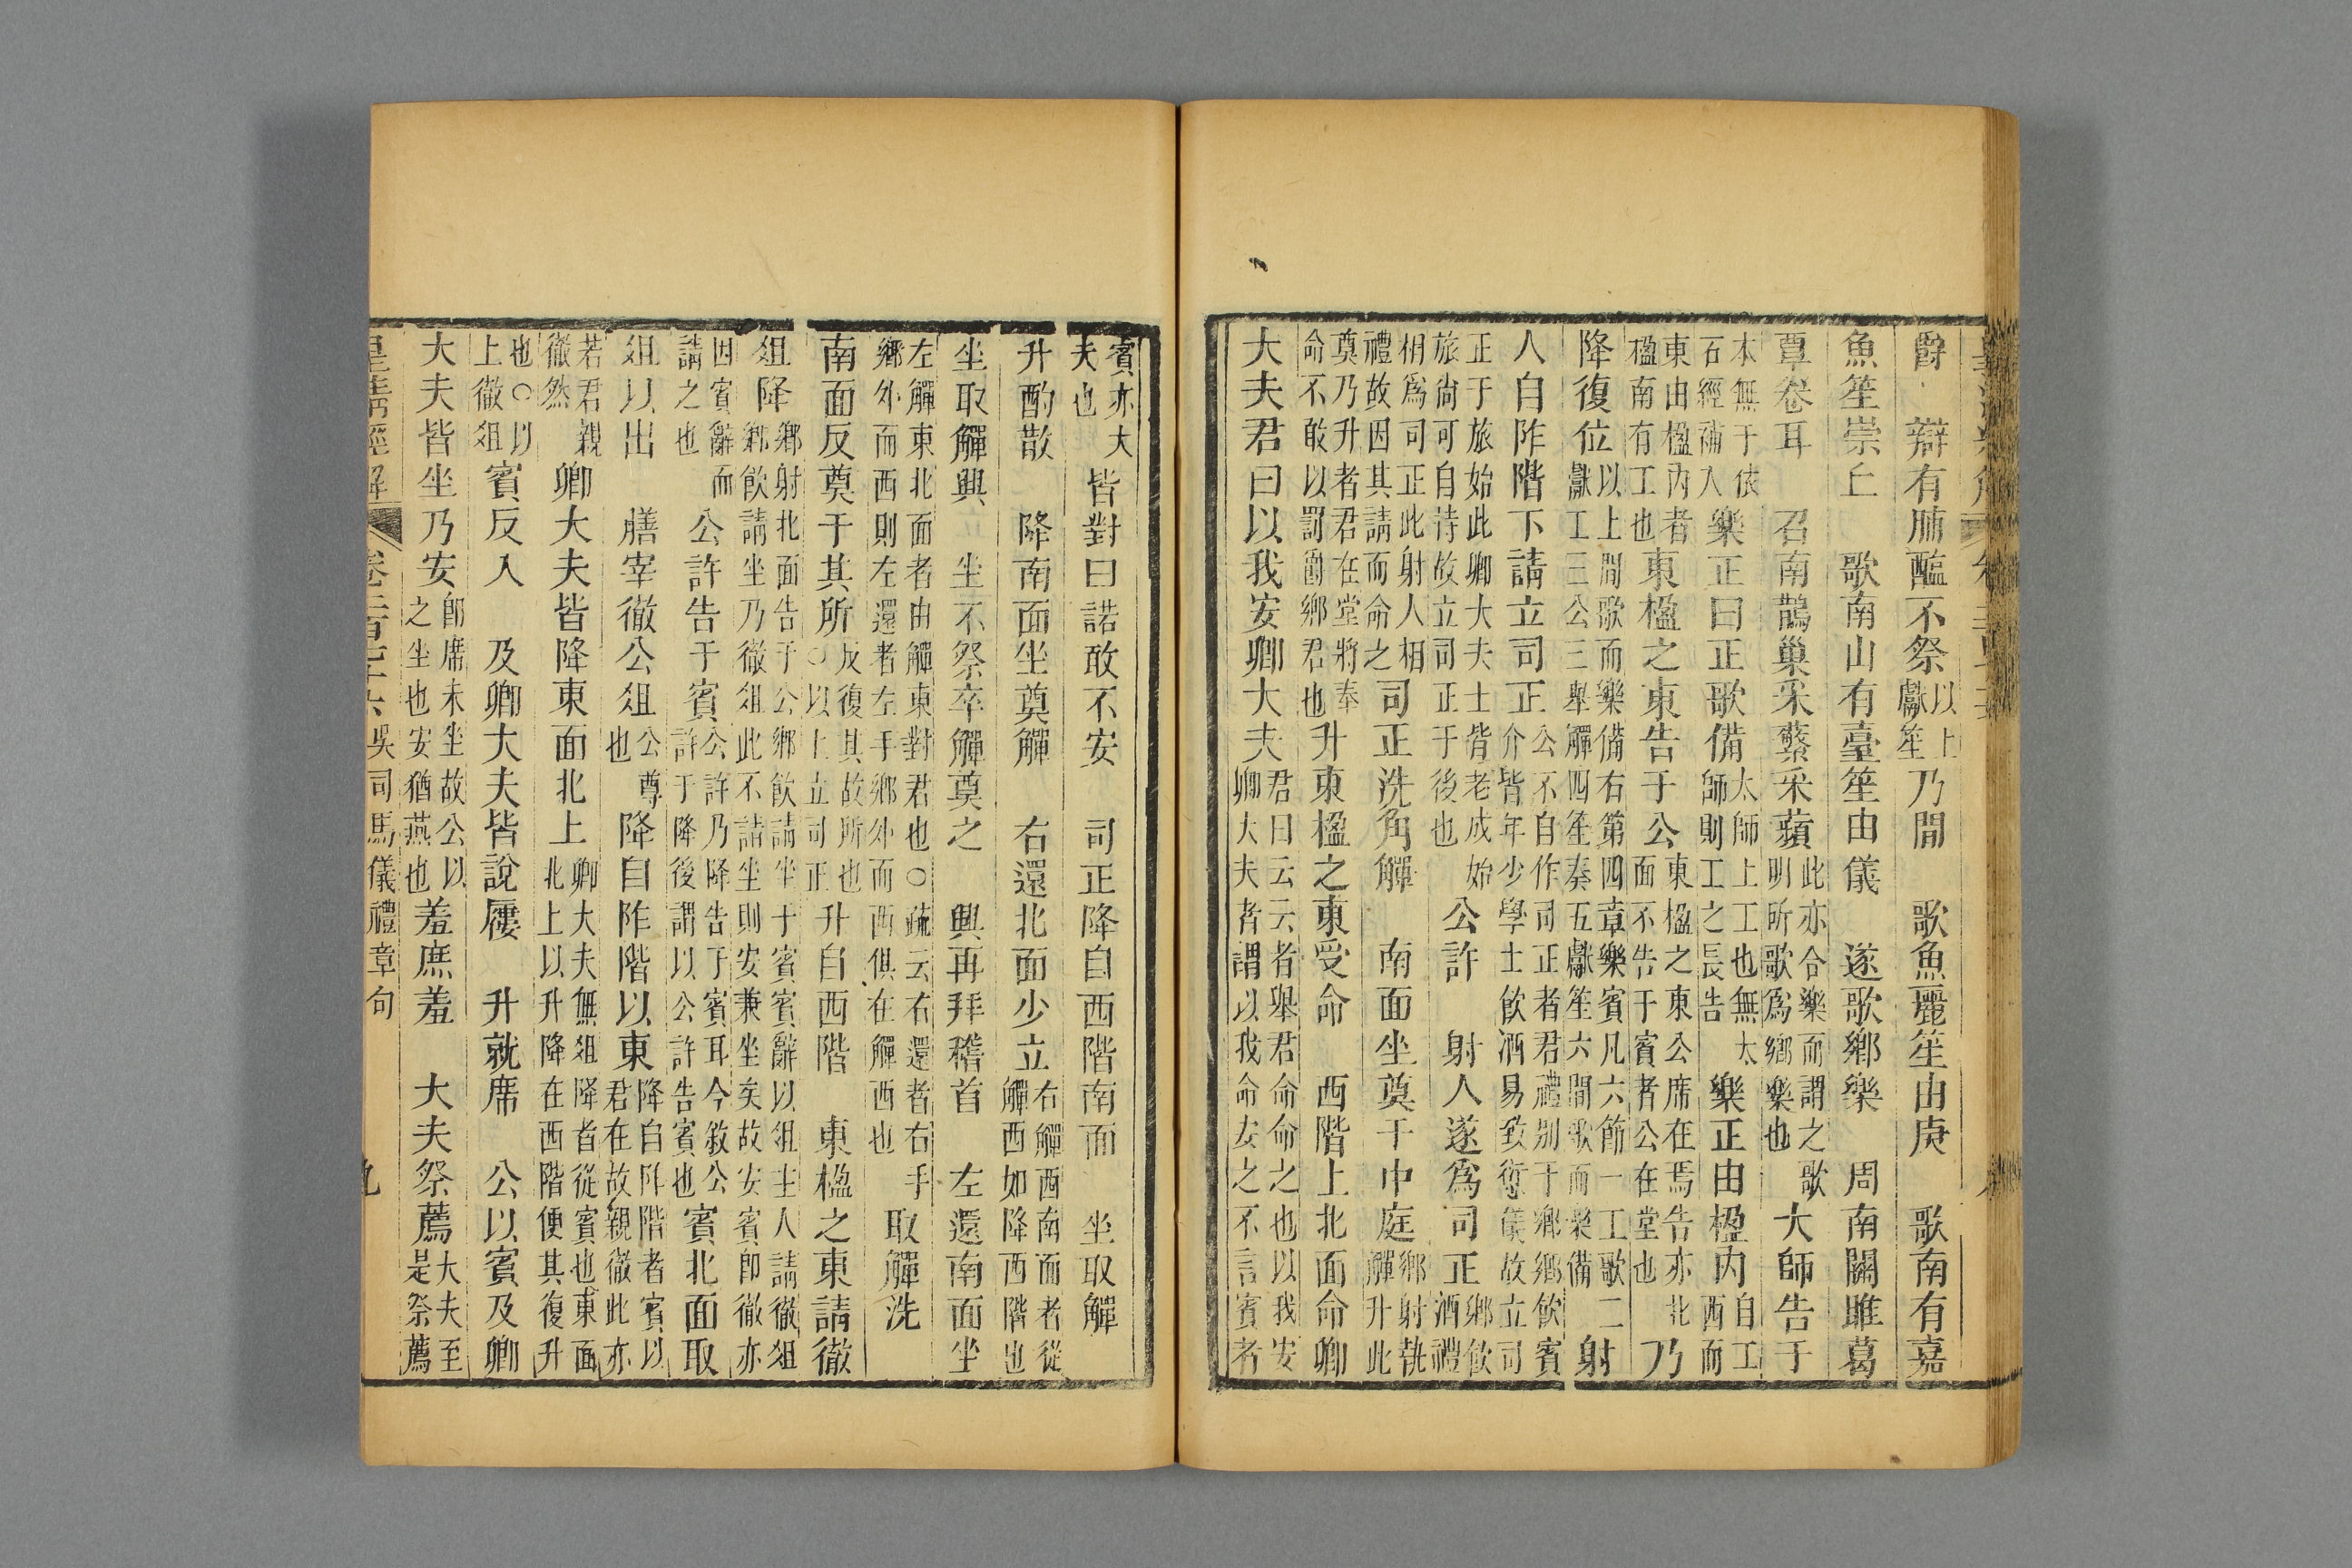 爵 辯有脯醢不祭以上獻笙乃間 歌魚麗笙由庚 歌南有嘉
魚笙崇丘 歌南山有臺笙由儀 遂歌鄉樂 周南關雎葛
覃卷耳 召南鵲巢采蘩采蘋此亦合樂而謂之歌明所歌爲鄉樂也大師告于
本無于依石經補入樂正曰正歌備太師上工也無太師則工之長告樂正由楹內自工西而
東由楹內者楹南有工也東楹之東告于公東楹之東公席在焉告亦北面不告于賓者公在堂也乃
降復位以上間歌而樂備右第四章樂賓凡六節一工歌二獻工三公三舉觶四笙奏五獻笙六間歌而樂備射
人自阼階下請立司正公不自作司正者君禮別于鄉鄉飲賓介皆年少學士飲酒易致愆儀故立司
正于旅始此卿大夫士皆老成始旅尚可自待故立司正于後也公許 射人遂爲司正鄉飲酒禮
相爲司正此射人相禮故因其請而命之司正洗角觶 南面坐奠于中庭鄉射執觶升此
奠乃升者君在堂將奉命不敢以罰爵鄉君也升東楹之東受命 西階上北面命卿
大夫君曰以我安卿大夫君曰云云者舉君命命之也以我安卿大夫者謂以我命安之不言賓者
賓亦大夫也皆對曰諾敢不安 司正降自西階南面 坐取觶
升酌散 降南面坐奠觶 右還北面少立右觶西南面者從觶西如降西階也
坐取觶興 坐不祭卒觶奠之 興再拜稽首 左還南面坐
左觶東北面者由觶東對君也○疏云右還者右手鄉外而西則左還者左手鄉外而西俱在觶西也取觶洗
南面反奠于其所反復其故所也○以上立司正升自西階 東楹之東請徹
俎降鄉射北面告于公鄉飲請坐于賓賓辭以俎主人請徹俎鄉飲請坐乃徹俎此不請坐則安兼坐矣故安賓卽徹亦
因賓辭而請之也公許告于賓公許乃降告于賓耳今敘公許于降後謂以公許告賓也賓北面取
俎以出 膳宰徹公俎公尊也降自阼階以東降自阼階者賓以君在故親徹此亦
若君親徹然卿大夫皆降東面北上卿大夫無俎降者從賓也東面北上以升降在西階便其復升
也○以上徹俎賓反入 及卿大夫皆說屨 升就席 公以賓及卿
大夫皆坐乃安卽席未坐故公以之坐也安猶燕也羞庶羞 大夫祭薦大夫至是祭薦
吳司馬儀禮章句